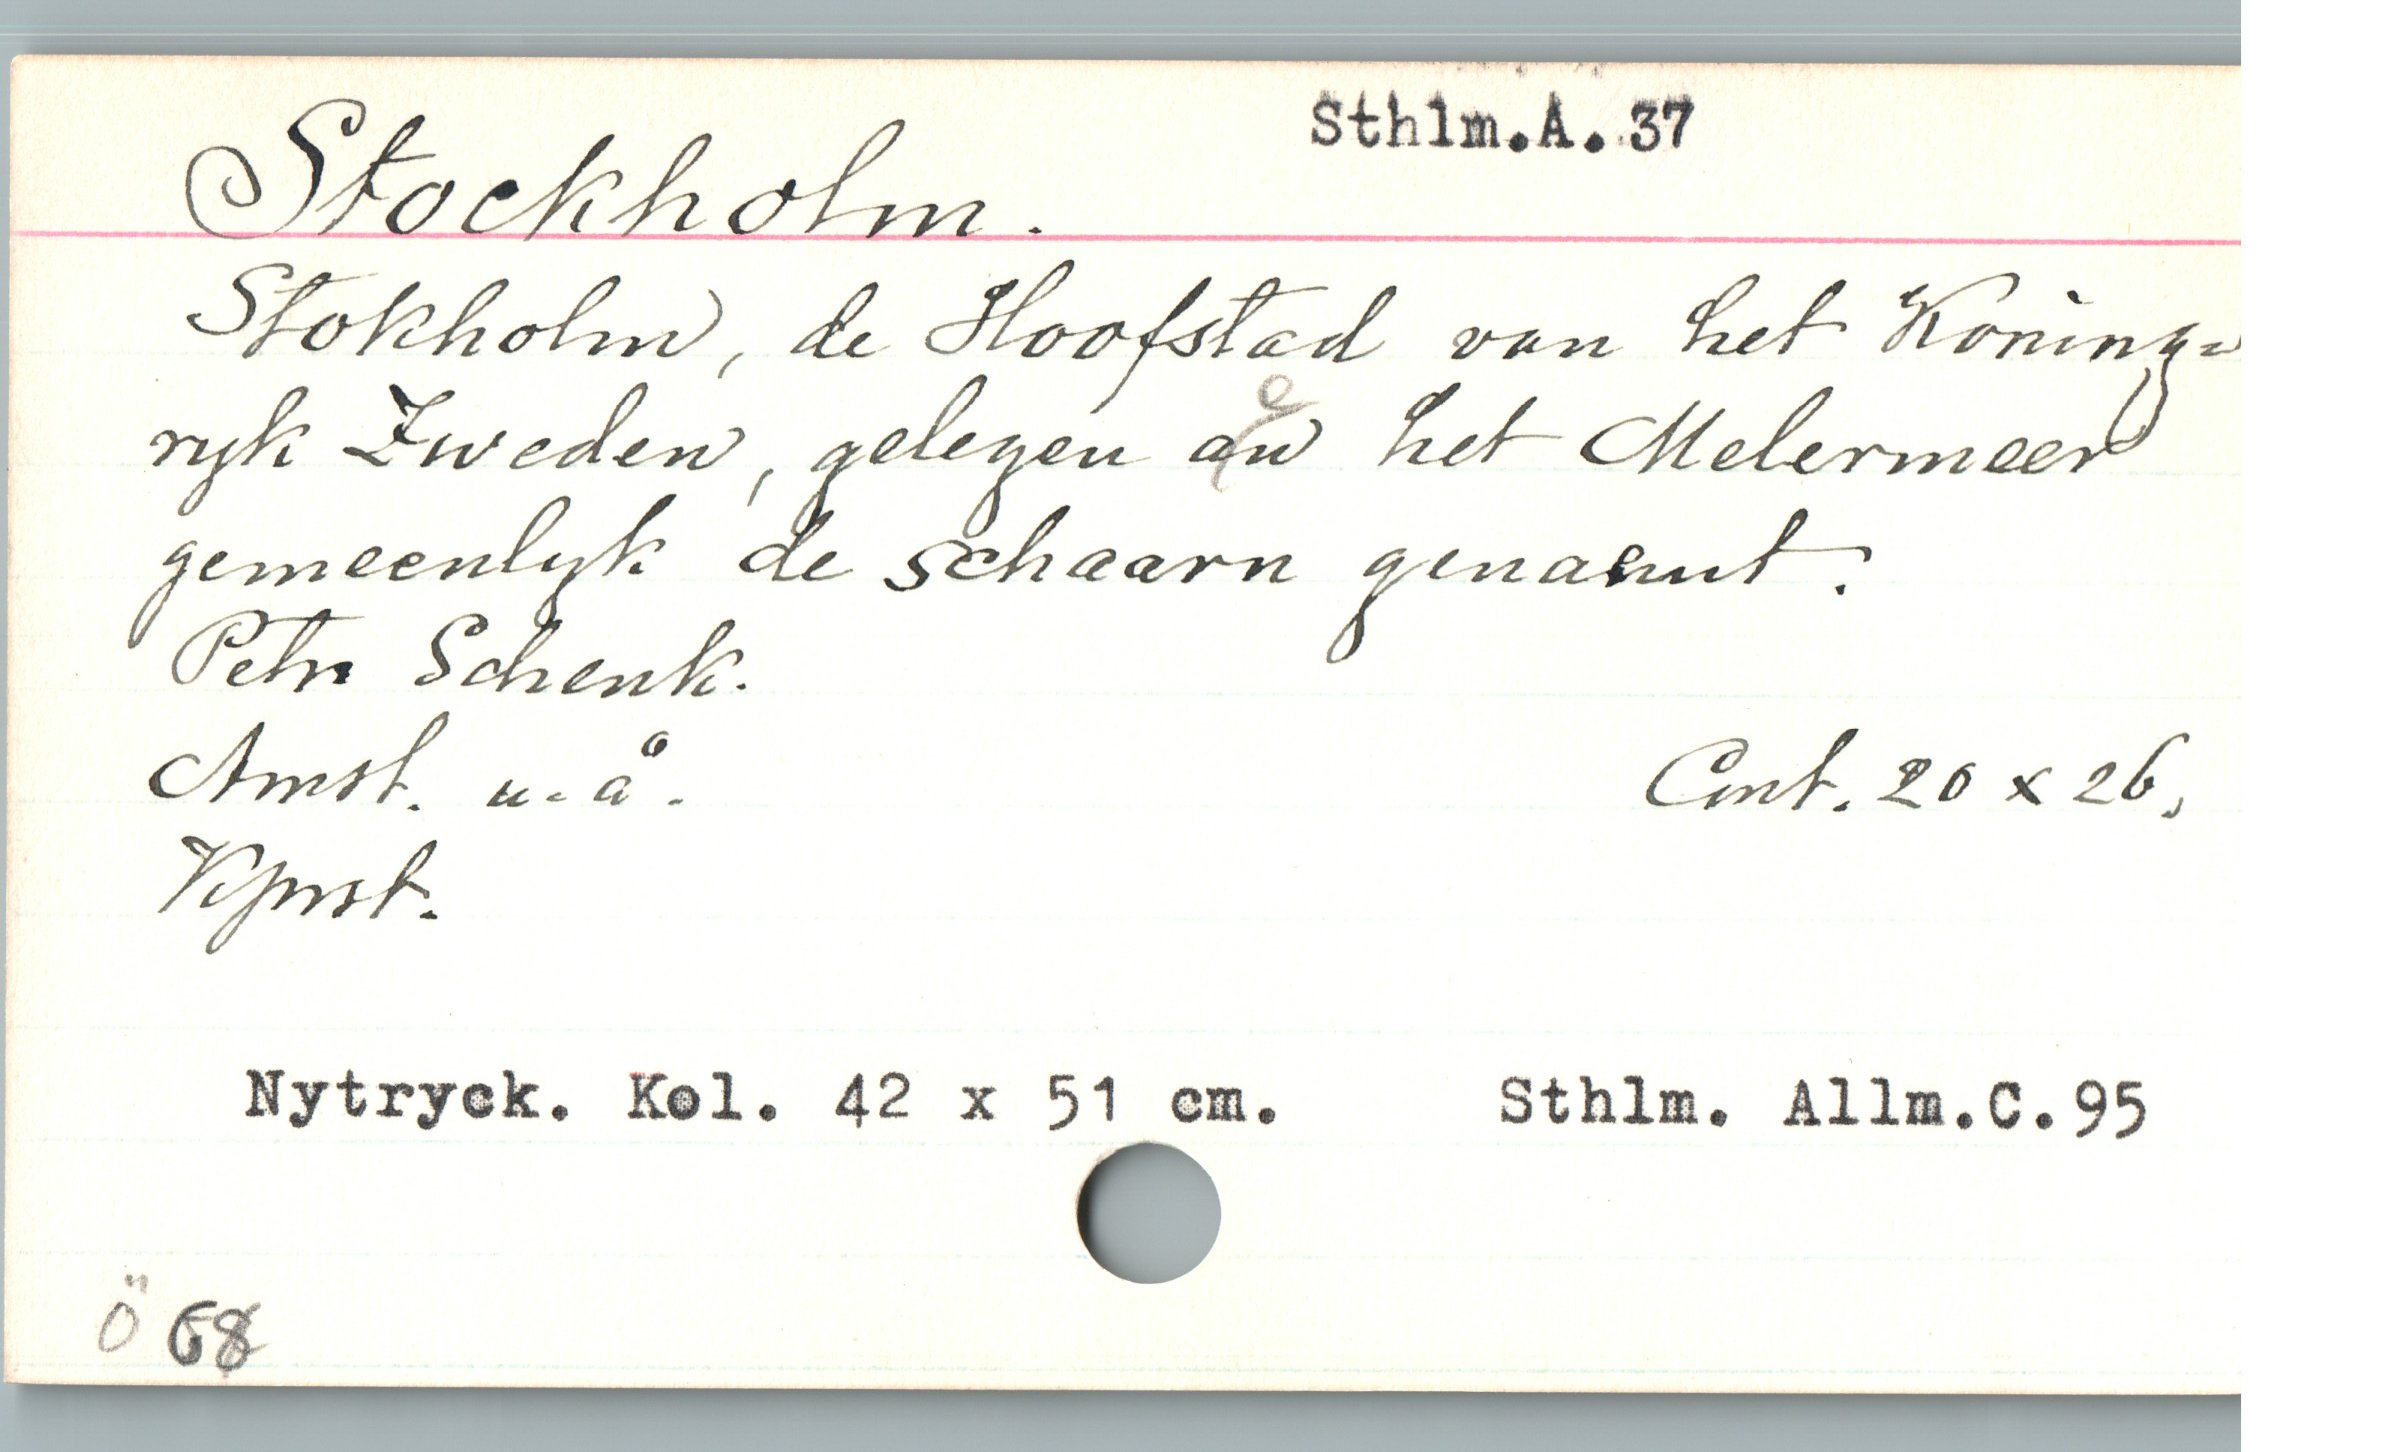 Sthlm.A.37
Stockholm.
Stokholm, de Hoofstad van het Koning-
ryk Zweden, gelegen an het Melermeer
e
gemeenlyk de schaarn genaemt.
Petr Schenk.
Amst. u. å.
Cmt. 20 x 26,
Kprst.
Nytryck. Kol. 42 x 51 cm.
Sthlm. Allm.C.95
Ö 68